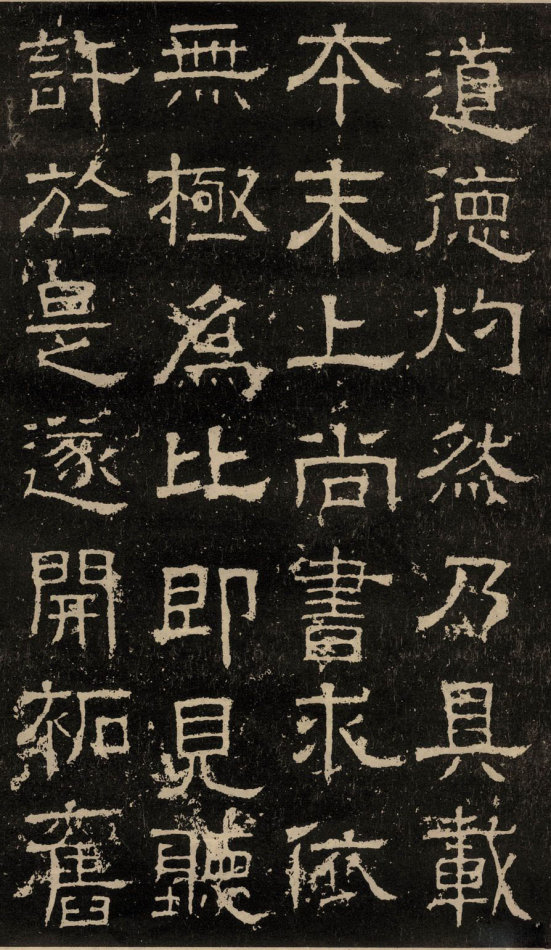 道德灼然乃具載
本末上尚書求依
無極為比即見聽
許於是遂開袥舊